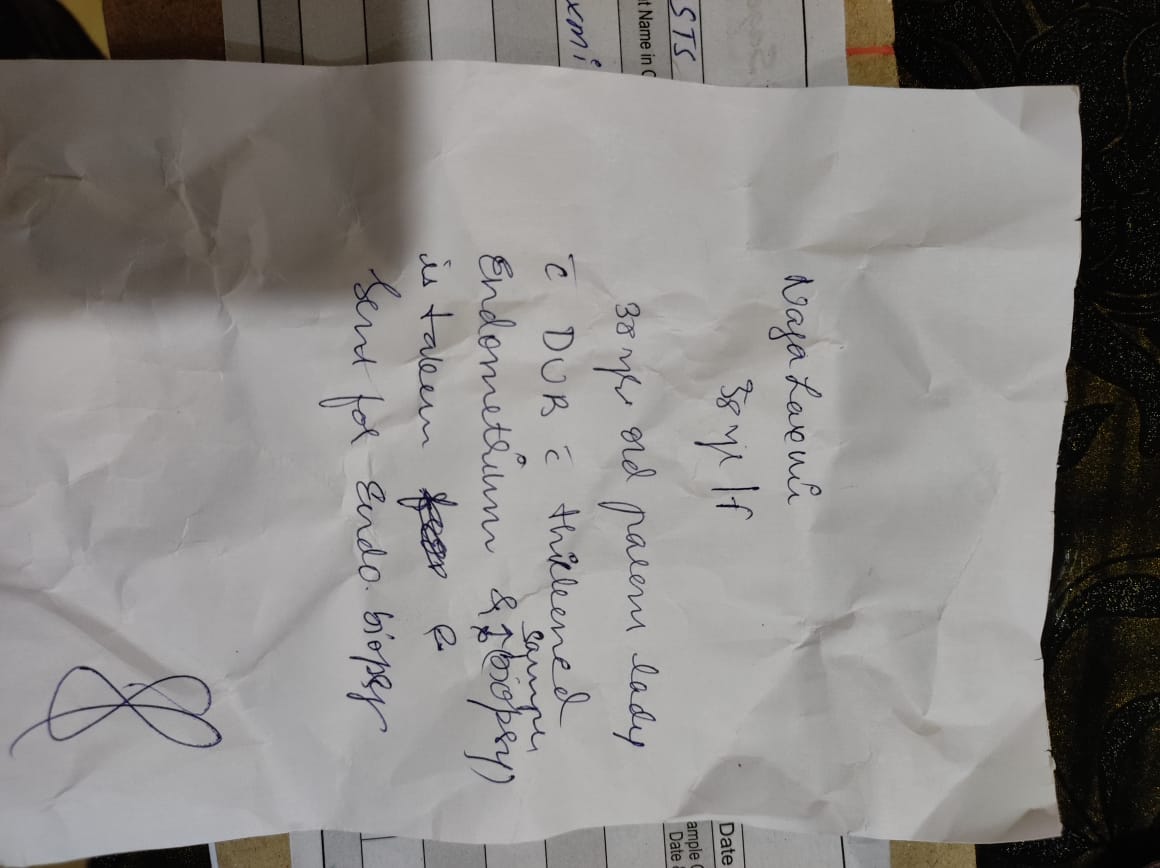 STS
t Name in C
xmi
Naga Laxmi
38 yr/f
38 yr old parous lady
c̄ DUB c̄ thickened
Endometrium & sample (biopsy)
is taken &
Sent for Endo. biopsy
Date
ample C
Date &